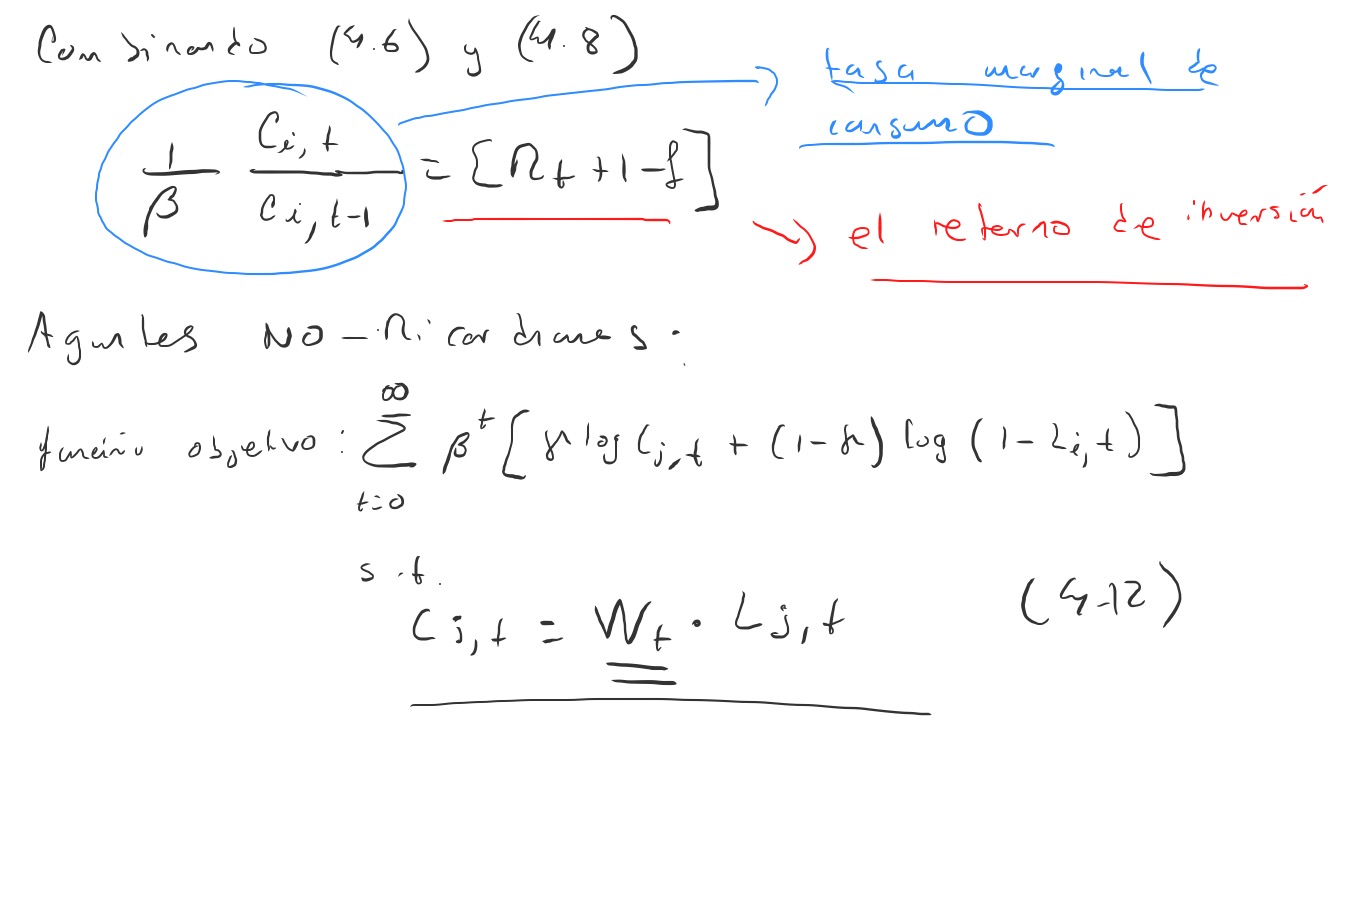 Combinando (4.6) y (4.8)
tasa marginal de
consumo
1/β C_{i,t}/C_{i,t-1} = [R_t + 1 - δ]
el retorno de inversión
Agentes NO-Ricardianos:
función objetivo: ∑_{t=0}^{∞} β^t [γ log C_{j,t} + (1-γ) log (1 - L_{i,t})]
s.t.
C_{j,t} = W_t · L_{j,t} (4.12)